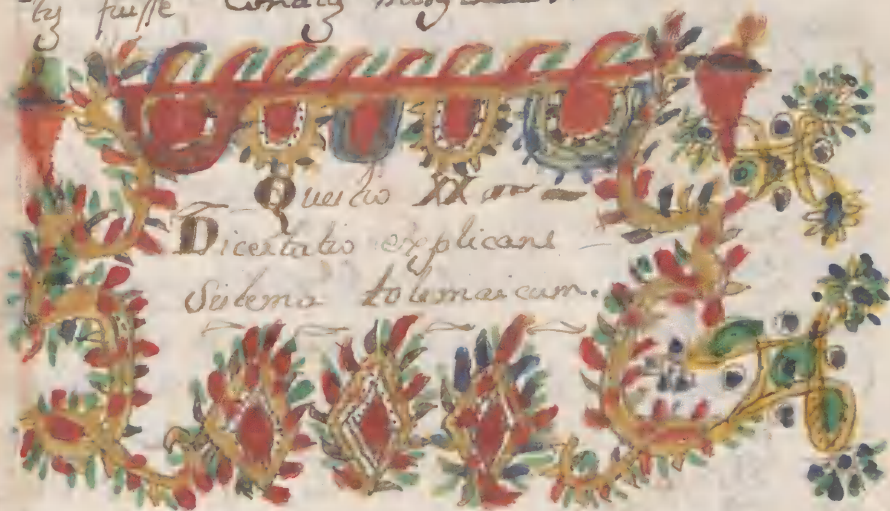 tz fuisse
Questio XX
Dicertatio explicans
Sistema tolemaicum.